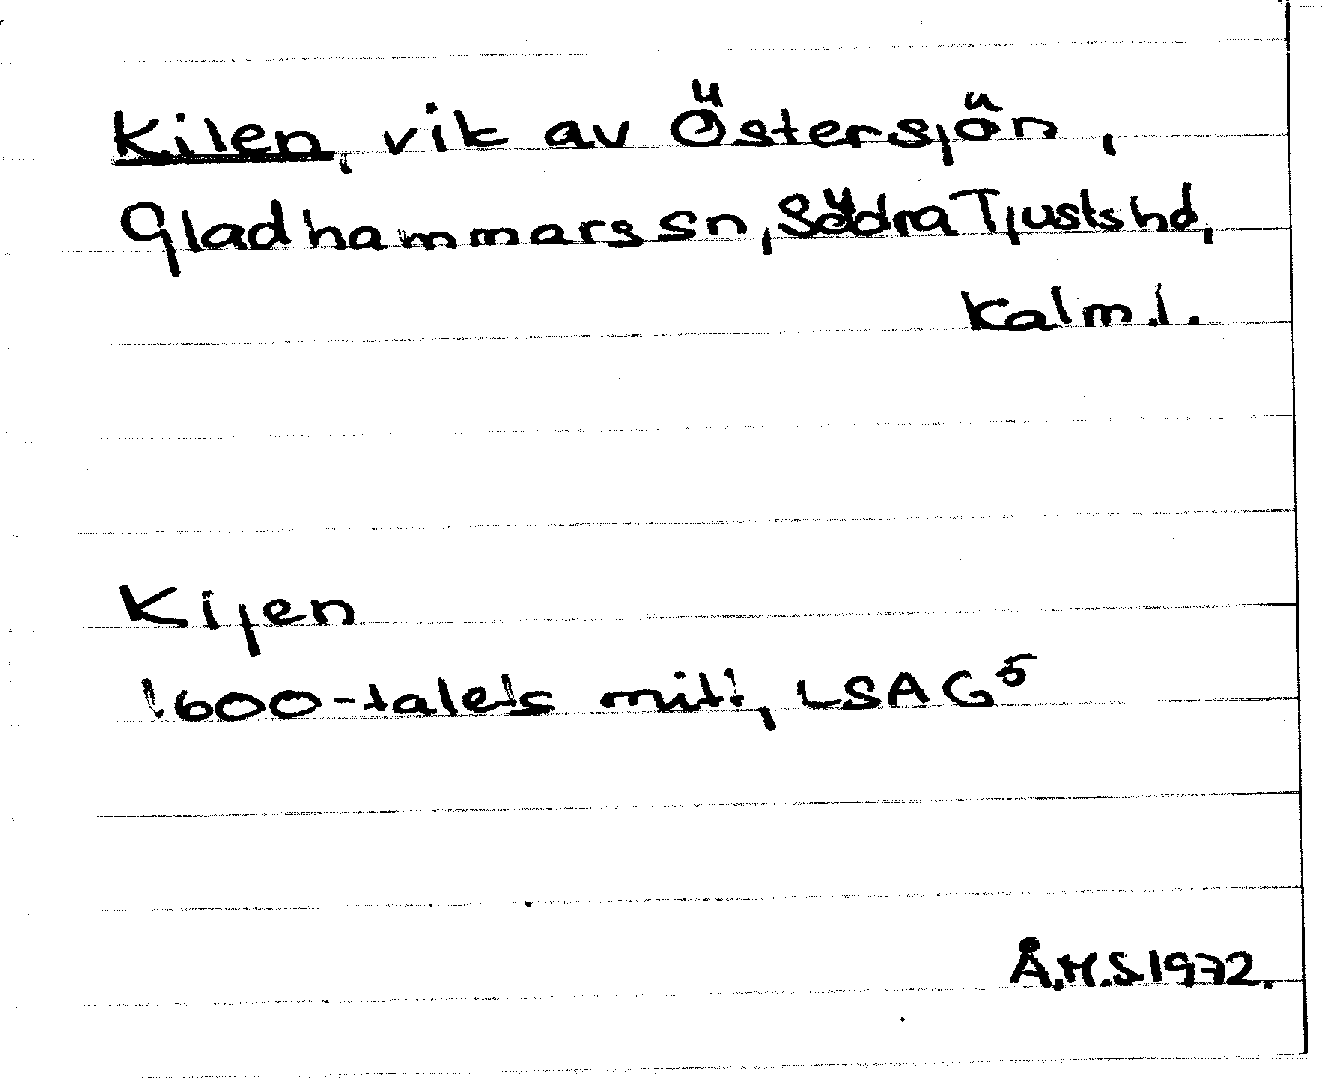 Kilen, vik av Östersjön,
Gladhammars sn, Södra Tjusts hd,
Kalm.l.
Kijen
1600-talets mitt, LSA G⁵
Å.H.S.1972.